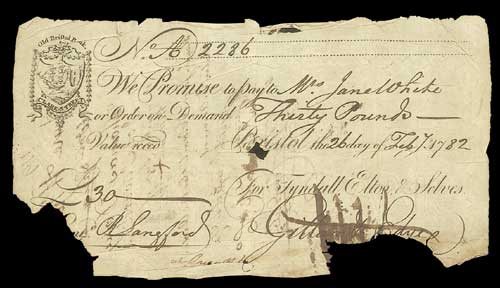 Old Bristol Bank
No. A 2286
We Promise to pay to Mrs Jane White
or Order on Demand Thirty Pounds
Value recd Bristol the 26 day of Feby. 1782
£30 For Tyndall Elton & Selves
R Langford